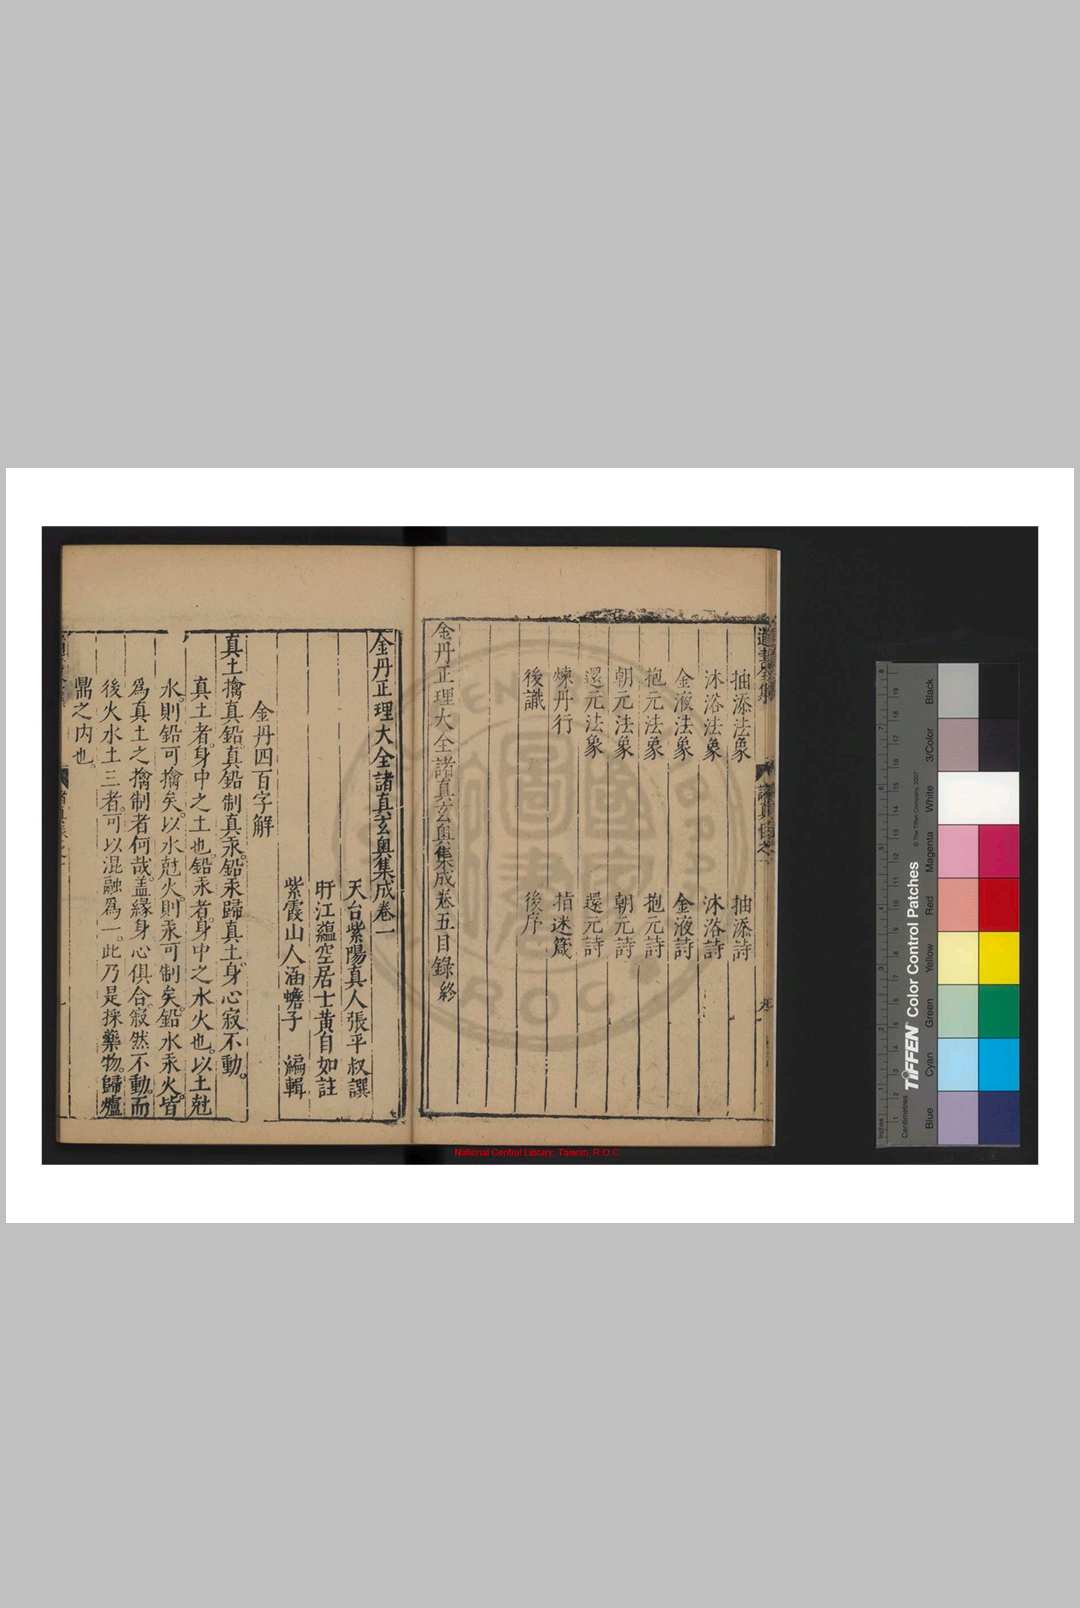 抽添法象　抽添詩
沐浴法象　沐浴詩
金液法象　金液詩
抱元法象　抱元詩
朝元法象　朝元詩
還元法象　還元詩
煉丹行　指迷箴
後識　後序
金丹正理大全諸真玄奧集成卷五目錄終
金丹正理大全諸真玄奧集成卷一
天台紫陽真人張平叔譔
盱江蘊空居士黃自如註
紫霞山人涵蟾子　編輯
金丹四百字解
真土擒真鉛真鉛制真汞。鉛汞歸真土。身心寂不動。
真土者。身中之土也。鉛汞者。身中之水火也。以土尅
水。則鉛可擒矣。以水尅火。則汞可制矣。鉛水汞火。皆
為真土之擒制者何哉。盖緣身心俱合。寂然不動。而
後火水土三者。可以混融為一。此乃是採藥物。歸爐
鼎之内也。
National Central Library, Taiwan, R.O.C
TIFFEN Color Control Patches
© The Tiffen Company, 2007
Inches
Centimetres
Blue
Cyan
Green
Yellow
Red
Magenta
White
3/Color
Black